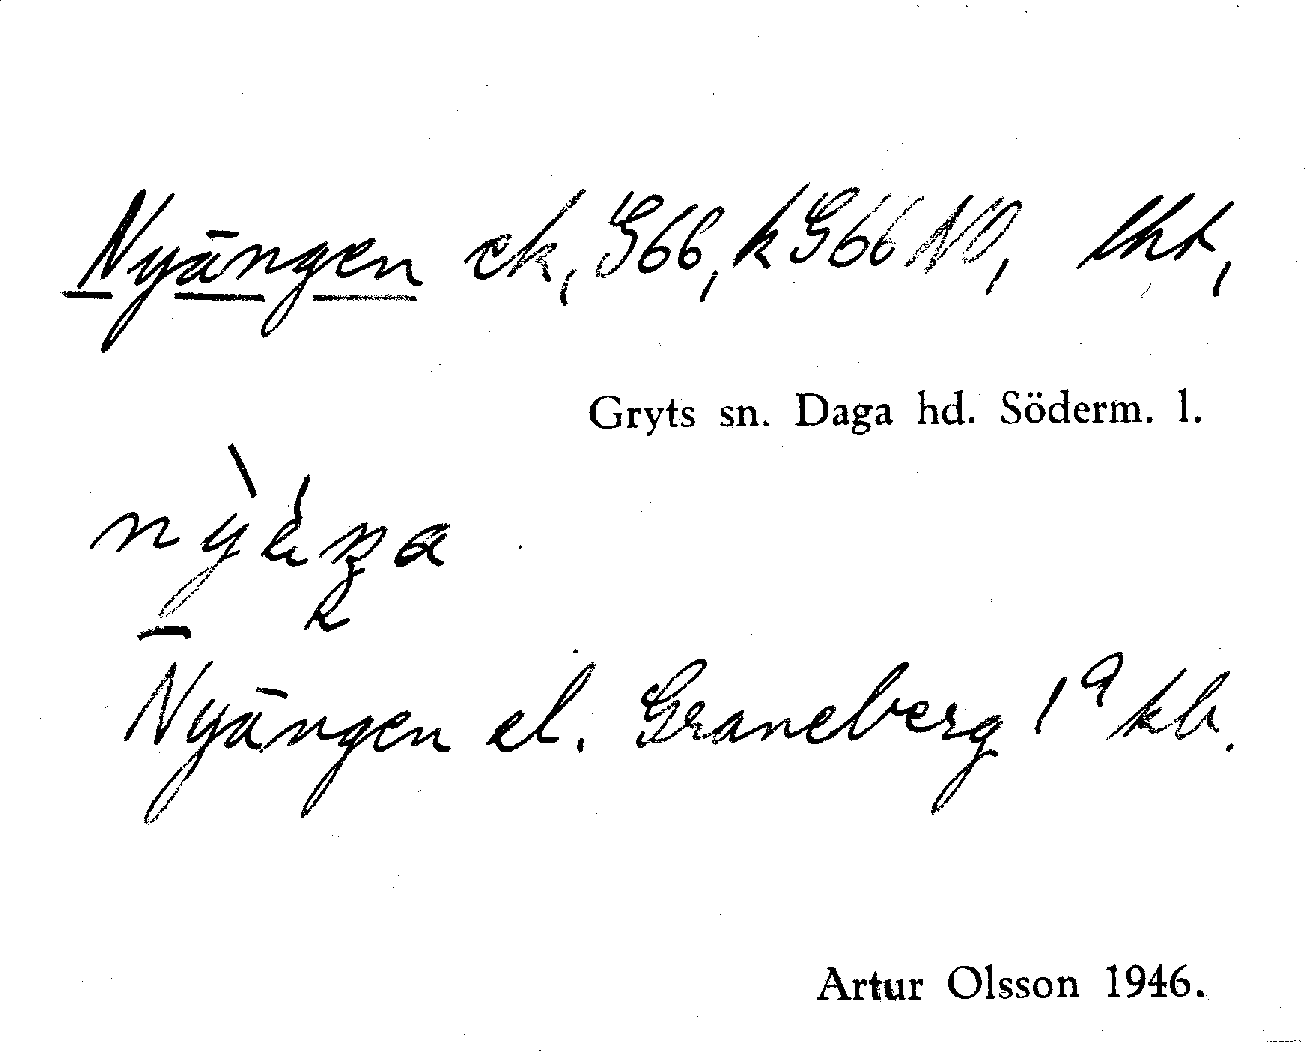 Nyängen ek, G66, k G66 NO, lht,
Gryts sn. Daga hd. Söderm. l.
Nyängen el. Graneberg 1ª kb.
Artur Olsson 1946.